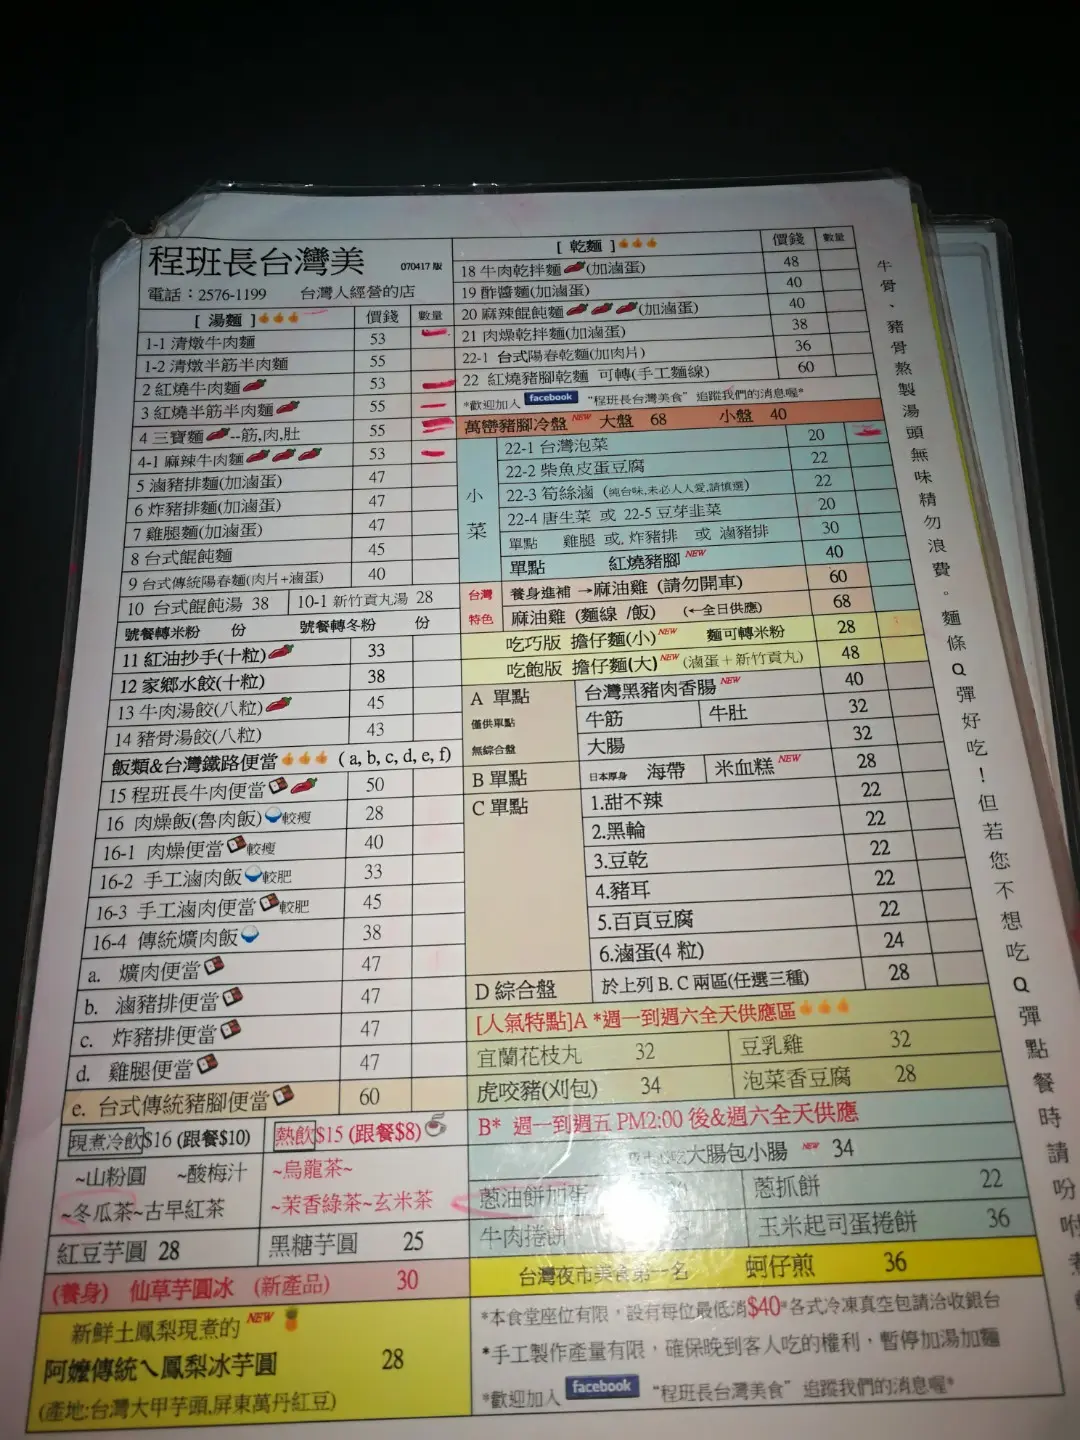 程班長台灣美
070417 版
電話：2576-1199 台灣人經營的店
[ 湯麵 ] 價錢 數量
1-1 清燉牛肉麵 53
1-2 清燉半筋半肉麵 55
2 紅燒牛肉麵 53
3 紅燒半筋半肉麵 55
4 三寶麵--筋,肉,肚 55
4-1 麻辣牛肉麵 53
5 滷豬排麵(加滷蛋) 47
6 炸豬排麵(加滷蛋) 47
7 雞腿麵(加滷蛋) 47
8 台式餛飩麵 45
9 台式傳統陽春麵(肉片+滷蛋) 40
10 台式餛飩湯 38 10-1 新竹貢丸湯 28
號餐轉米粉 份 號餐轉冬粉 份
11 紅油抄手(十粒) 33
12 家鄉水餃(十粒) 38
13 牛肉湯餃(八粒) 45
14 豬骨湯餃(八粒) 43
飯類&台灣鐵路便當 ( a, b, c, d, e, f)
15 程班長牛肉便當 50
16 肉燥飯(魯肉飯) 較瘦 28
16-1 肉燥便當 較瘦 40
16-2 手工滷肉飯 較肥 33
16-3 手工滷肉便當 較肥 45
16-4 傳統爌肉飯 38
a. 爌肉便當 47
b. 滷豬排便當 47
c. 炸豬排便當 47
d. 雞腿便當 47
e. 台式傳統豬腳便當 60
現煮冷飲$16 (跟餐$10) 熱飲$15 (跟餐$8)
~山粉圓 ~酸梅汁 ~烏龍茶~
~冬瓜茶~古早紅茶 ~茉香綠茶~玄米茶
紅豆芋圓 28 黑糖芋圓 25
(養身) 仙草芋圓冰 (新產品) 30
新鮮土鳳梨現煮的 NEW
阿嬤傳統ㄟ鳳梨冰芋圓 28
(產地:台灣大甲芋頭,屏東萬丹紅豆)
[ 乾麵 ] 價錢 數量
18 牛肉乾拌麵(加滷蛋) 48
19 酢醬麵(加滷蛋) 40
20 麻辣餛飩麵(加滷蛋) 40
21 肉燥乾拌麵(加滷蛋) 38
22-1 台式陽春乾麵(加肉片) 36
22 紅燒豬腳乾麵 可轉(手工麵線) 60
*歡迎加入 facebook “程班長台灣美食” 追蹤我們的消息喔*
萬巒豬腳冷盤 NEW 大盤 68 小盤 40
小菜
22-1 台灣泡菜 20
22-2 柴魚皮蛋豆腐 22
22-3 筍絲滷 (純台味,未必人人愛,請慎選) 22
22-4 唐生菜 或 22-5 豆芽韭菜 20
單點 雞腿 或, 炸豬排 或 滷豬排 30
單點 紅燒豬腳 NEW 40
台灣特色
養身進補 →麻油雞 (請勿開車) 60
麻油雞 (麵線 /飯) (←全日供應) 68
吃巧版 擔仔麵(小) NEW 麵可轉米粉 28
吃飽版 擔仔麵(大) NEW (滷蛋＋新竹貢丸) 48
A 單點 台灣黑豬肉香腸 NEW 40
僅供單點 牛筋 牛肚 32
無綜合盤 大腸 32
B 單點 日本厚身 海帶 米血糕 NEW 28
C 單點 1.甜不辣 22
2.黑輪 22
3.豆乾 22
4.豬耳 22
5.百頁豆腐 22
6.滷蛋(4 粒) 24
D 綜合盤 於上列 B. C 兩區(任選三種) 28
[人氣特點]A *週一到週六全天供應區
宜蘭花枝丸 32 豆乳雞 32
虎咬豬(刈包) 34 泡菜香豆腐 28
B* 週一到週五 PM2:00 後&週六全天供應
大腸包小腸 NEW 34
蔥油餅加蛋 蔥抓餅 22
牛肉捲餅 玉米起司蛋捲餅 36
台灣夜市美食第一名 蚵仔煎 36
*本食堂座位有限，設有每位最低消$40*各式冷凍真空包請洽收銀台
*手工製作產量有限，確保晚到客人吃的權利，暫停加湯加麵
*歡迎加入 facebook “程班長台灣美食” 追蹤我們的消息喔*
牛骨、豬骨熬製湯頭無味精勿浪費。麵條Q彈好吃！但若您不想吃Q彈點餐時請吩咐煮